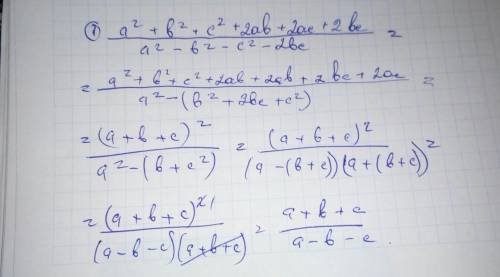 ① (a² + b² + c² + 2ab + 2ac + 2bc) / (a² - b² - c² - 2bc) =
= (a² + b² + c² + 2ab + 2ab + 2bc + 2ac) / (a² - (b² + 2bc + c²)) =
= (a + b + c)² / (a² - (b + c²)) = (a + b + c)² / ((a - (b + c))(a + (b + c))) =
= (a + b + c)²¹ / ((a - b - c)(a + b + c)) = (a + b + c) / (a - b - c).